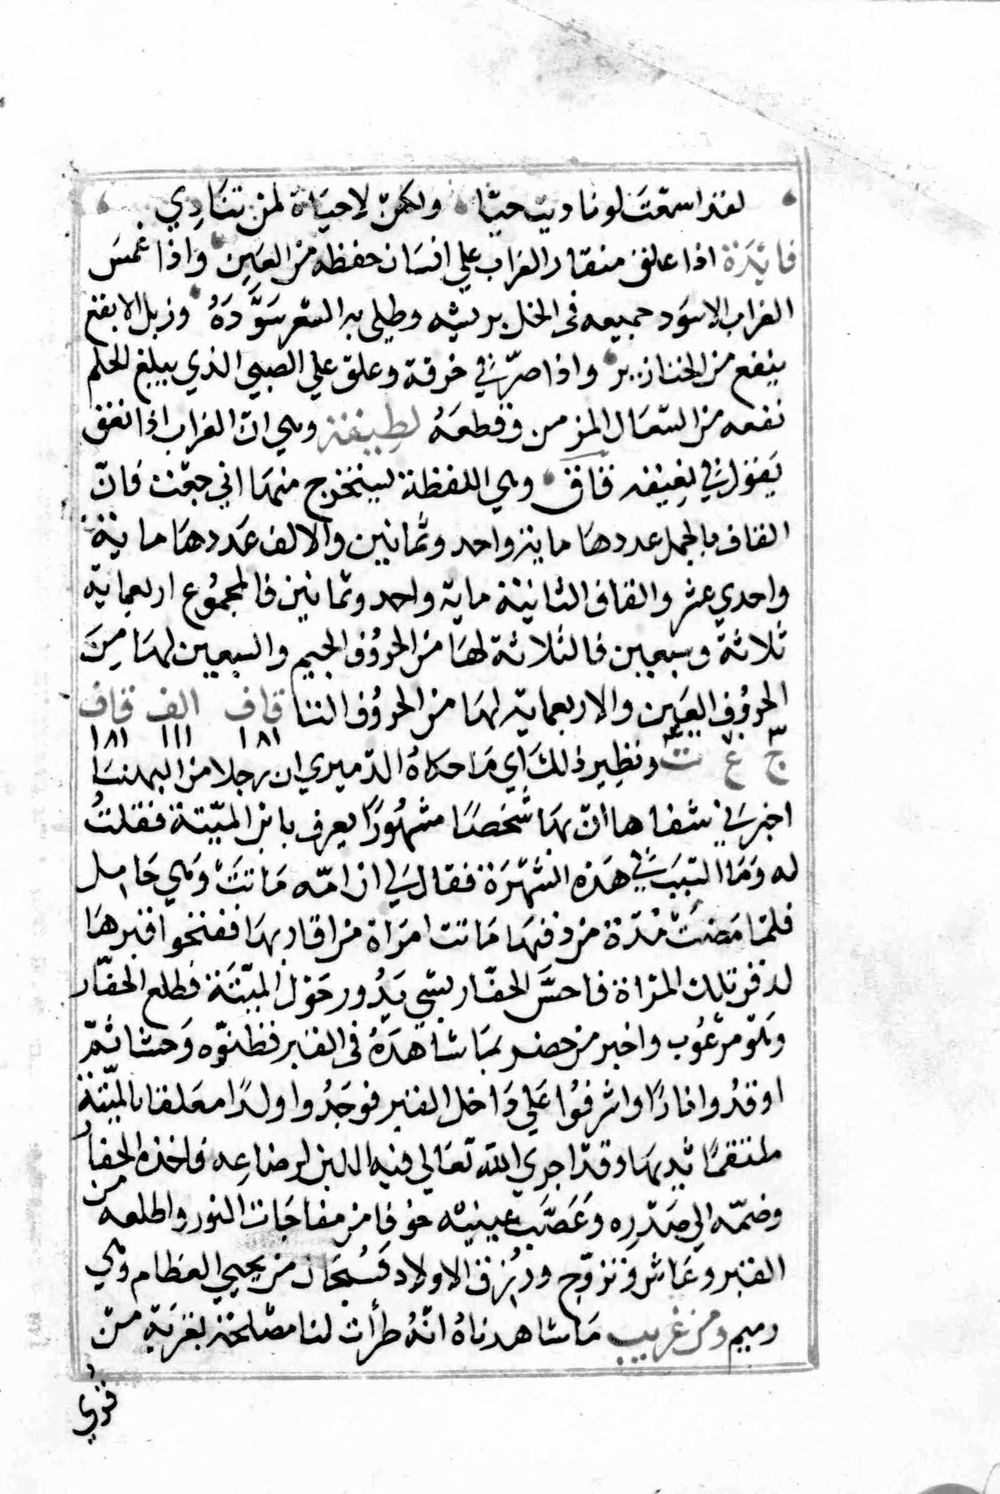 لقد اسمعت لو ناديت حيّا ولكن لا حيَاة لمن تنَادِي
فائِدَة اذا علق منقار الغراب علي انسان حفظه من العَين واذا غمسَ
الغراب الاسوَد جميعه في الخل بريشه وطلي به الشعر سَوَّدَهُ وزبل الابقع
ينفع من الخنازير واذا صرّ في خرقة وعلق علي الصبي الذي يبلغ الحلم
نفعه من السّعَال المزمن وقطعَهُ لطِيفة وهي انّ الغراب اذا نغق
يَقول في نغيقه قاق وهي اللفظة ليستخرج منهَا اني جعْت فانّ
القاف بالجمل عددهَا ماية واحد وثمانين والالف عَددهَا ماية
واحدي عشر والقاف الثانيَة ماية واحد وثمانين فالمجمُوع اربعماية
ثلاثة وسبعين فالثلاثة لهَا من الحرُوف الجيم والسبعين لهَا مِنَ
الحرُوف العَين والاربعماية لهَا من الحرُوف التا قاف الف قاف
١٨١ ١١١ ١٨١
ج ع ت ونظِير ذلكَ اي مَا حكاهُ الدّميري ان رجلا من البهنسَا
اخبرَني شفاها انّ بهَا شخصًا مشهُورًا يعرف بابن الميّتة فقلتُ
له وَمَا السّبَب في هَذه الشهْرَة فقال لي ان امّه مَاتَتْ وَهي حَامل
فلمّا مَضتْ مُدّة من دفنهَا مَاتت امرَاة من اقاربهَا ففتحوا قبرهَا
لدفن تلك المرْاة فاحسَّ الحفّار بشي يَدُور حَوْل الميّتَة فطلع الحفّار
وَهوَ مرعُوب واخبر من حضر بمَا شاهدَهُ في القبر فظنّوه وَحشا ثمّ
اوقدُوا نارًا واشرفوُا عَلي دَاخل القبر فوجَدُوا ولدًا معَلقا بالميّتة
ملتقمًا ثديهَا وقدْ اجري اللّه تعَالي فيه اللبن لرضاعِه فاخذه الحفارُ
وضمّه الي صَدْرِه وَعَصَّبَ عينيْه خوْفا من مفاجَات النور واطلعه من
القبر وعَاش وتزوّج ورُزق الاولاد فسُبْحَان من يحيي العظام وهي
رميم ومن غريب مَا شاهدناهُ انّهُ طرأت لنا مصْلحة بقريَة منْ
قري